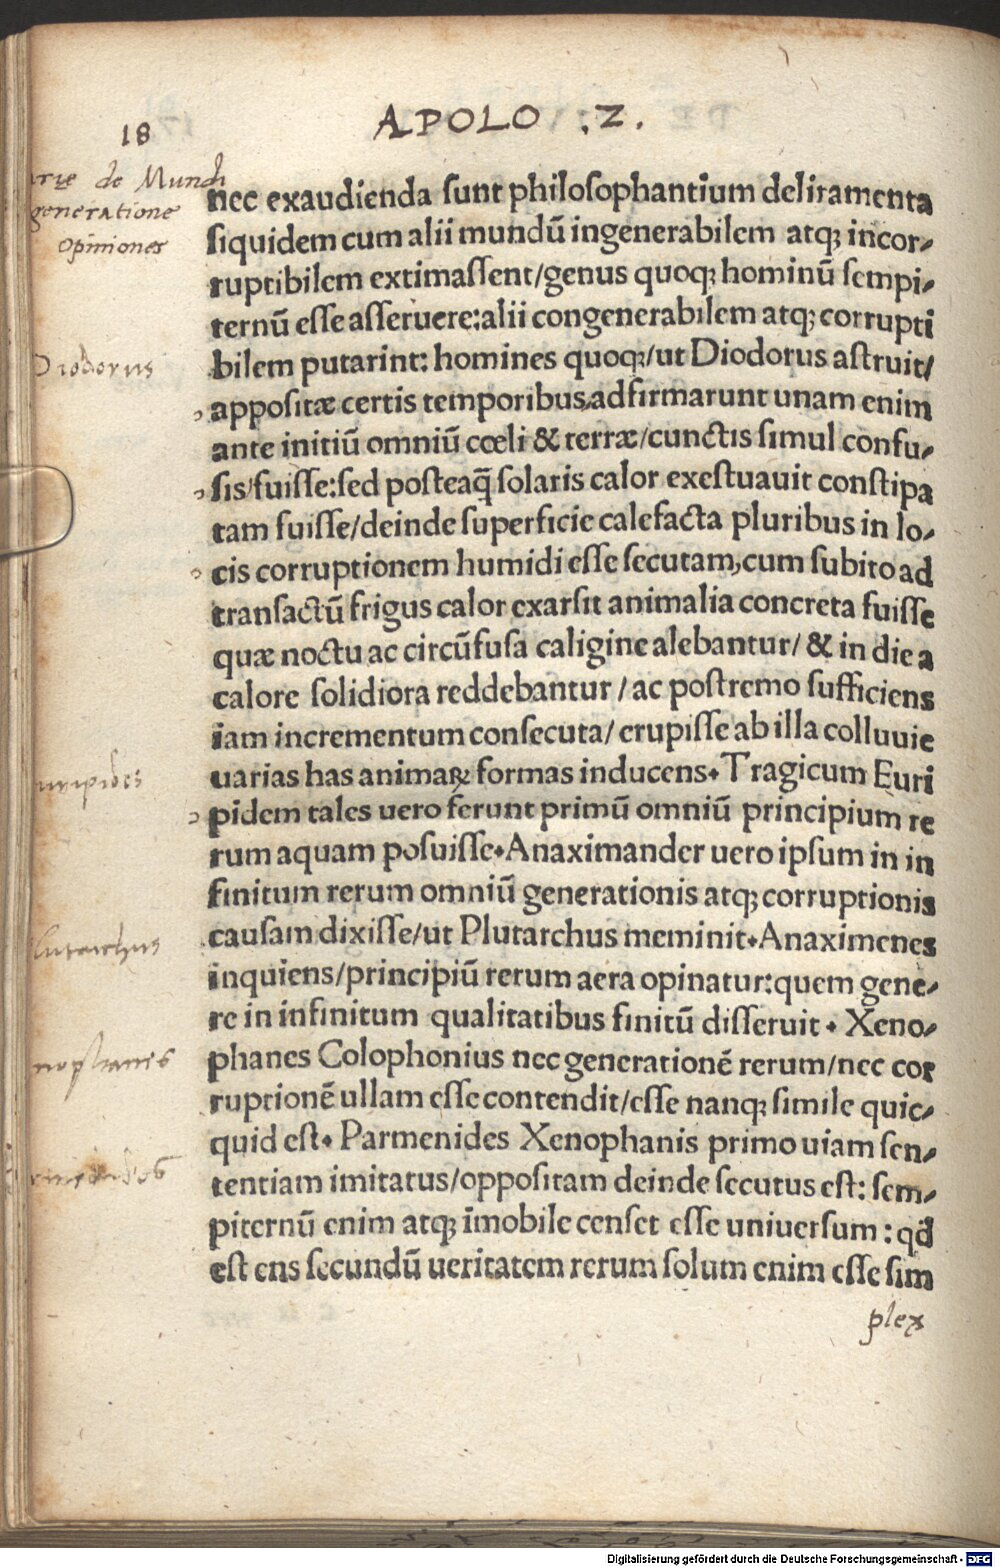 APOLO .Z.
18
de Mundi
generatione
Opiniones
nec exaudienda sunt philosophantium deliramenta
siquidem cum alii mundū ingenerabilem atq; incor-
ruptibilem extimassent/genus quoq; hominū sempi-
ternū esse asseruere:alii congenerabilem atq; corrupti
Diodorus
bilem putarint: homines quoq;/ut Diodorus astruit/
appositæ certis temporibus,adfirmarunt unam enim
ante initiū omniū cœli & terræ/cunctis simul confu-
sis/fuisse:sed posteaq̃ solaris calor exestuauit constipa
tam fuisse/deinde superficie calefacta pluribus in lo-
cis corruptionem humidi esse secutam,cum subito ad
transactū frigus calor exarsit animalia concreta fuisse
quæ noctu ac circūfusa caligine alebantur/ & in die a
calore solidiora reddebantur / ac postremo sufficiens
iam incrementum consecuta/ erupisse ab illa colluuie
uripides
uarias has animaꝝ formas inducens.Tragicum Euri
pidem tales uero ferunt primū omniū principium re
rum aquam posuisse.Anaximander uero ipsum in in
finitum rerum omniū generationis atq; corruptionis
lutarchus
causam dixisse/ut Plutarchus meminit.Anaximenes
inquiens/principiū rerum aera opinatur:quem gene-
re in infinitum qualitatibus finitū disseruit . Xeno-
nophanes
phanes Colophonius nec generationē rerum/nec cor
ruptionē ullam esse contendit/esse nanq; simile quic-
quid est. Parmenides Xenophanis primo uiam sen-
tentiam imitatus/oppositam deinde secutus est: sem-
piternū enim atq; īmobile censet esse uniuersum : qd̄
est ens secundū ueritatem rerum solum enim esse sim
plex
Digitalisierung gefördert durch die Deutsche Forschungsgemeinschaft - DFG